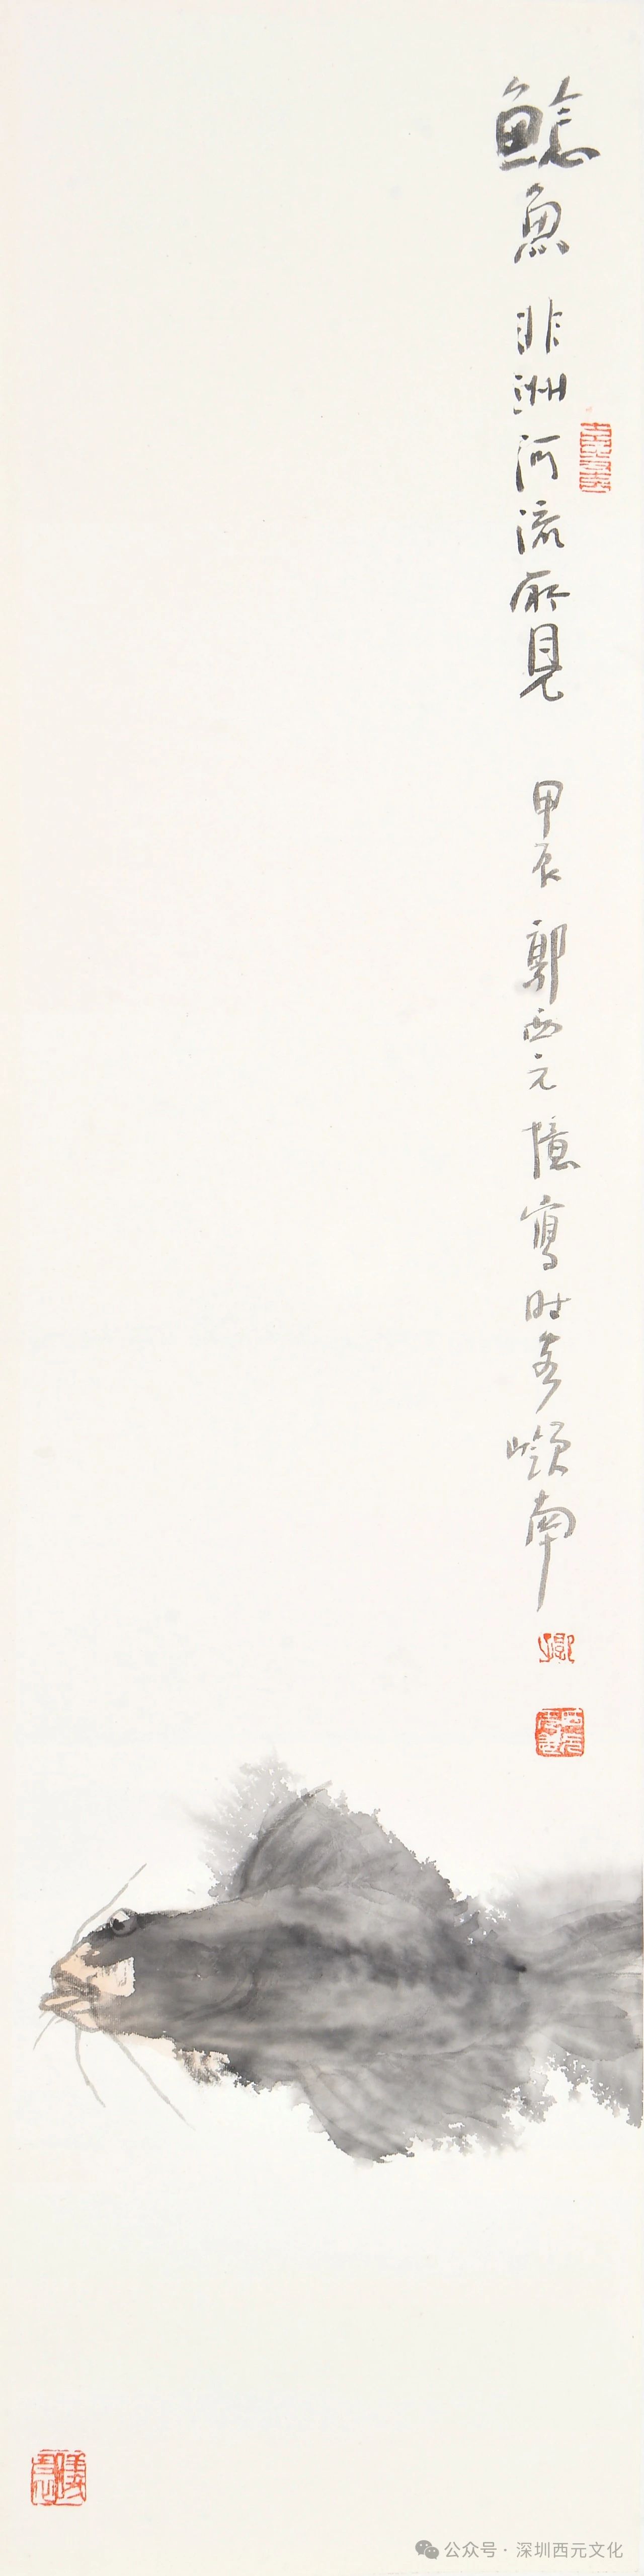 鯰魚 非洲河流所見 甲辰 郭西元憶寫時客嶺南
公众号 · 深圳西元文化